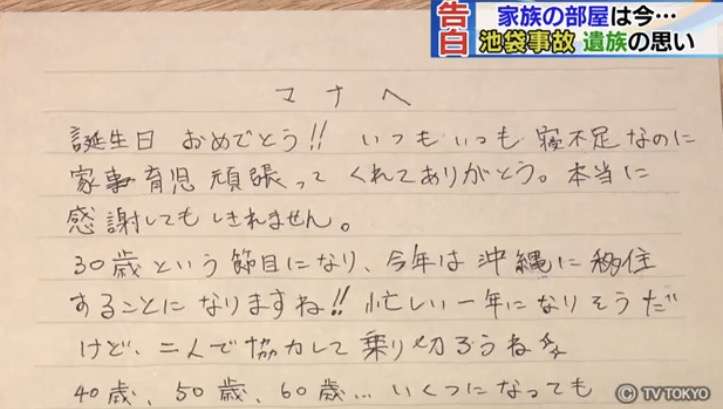 告白
家族の部屋は今…
池袋事故 遺族の思い
マナへ
誕生日 おめでとう!! いつもいつも 寝不足なのに
家事 育児 頑張って くれてありがとう。本当に
感謝してもしきれません。
30歳という節目になり、今年は 沖縄に移住
することになりますね!! 忙しい一年になりそうだ
けど、二人で協力して乗り切ろうね☆
40歳、50歳、60歳… いくつになっても
© TV TOKYO